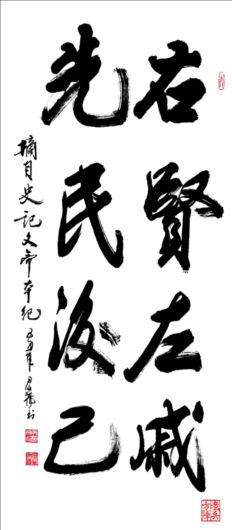 右賢左戚
先民後己
摘自史記文帝本紀